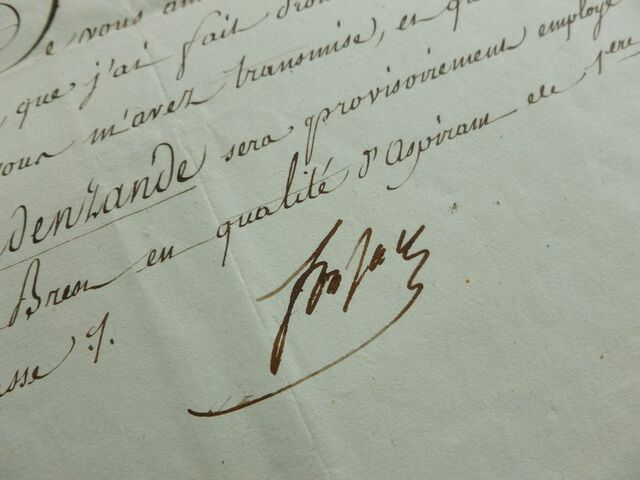 Je vous an
que j'ai fait droi
vous m'avez transmise, et qu
denzande sera provisoirement employé
Brest en qualité d'aspirant de 1ere
asse ./.